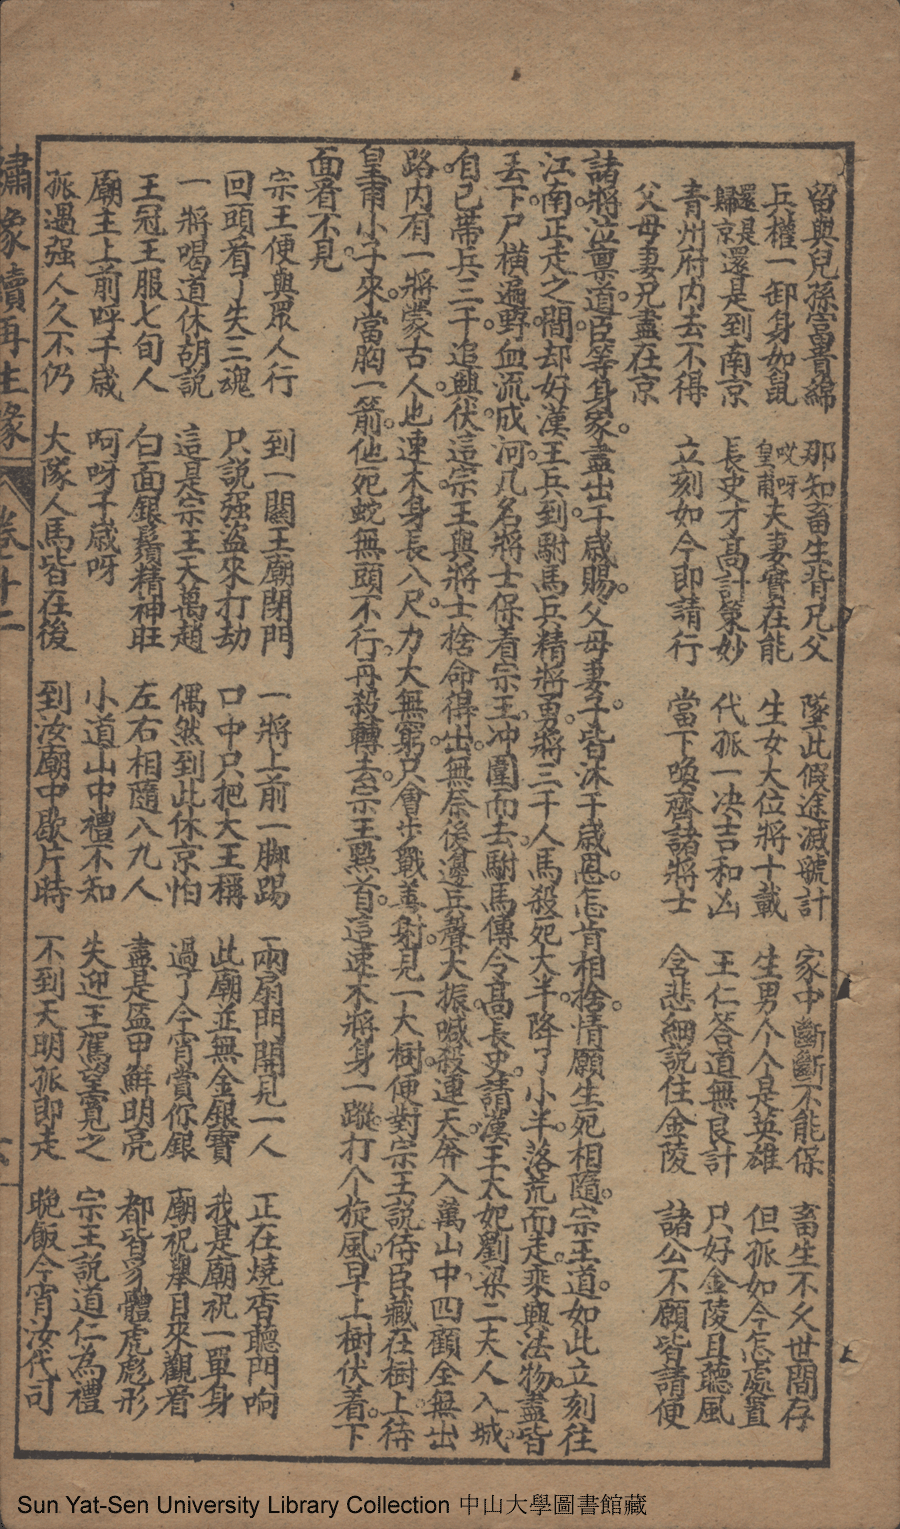 留與兒孫富書綿　那知畜生背兄父　墜此假途滅虢計　家中斷斷不能保　畜生不久世間存
兵權一卸身如鼠　哎呀皇甫夫妻實在能　生女大位將十載　生男个个是英雄　但孤如今怎處置
還是歸京還是到南京　長史才高計策妙　代孤一决吉和凶　王仁答道無良計　只好金陵且聽風
青州府内去不得　立刻如今即請行　當下喚齊諸將士　含悲細説住金陵　諸公不願皆請便
父母妻兄盡在京
諸將泣禀道。臣等身家。盡出千歳賜。父母妻子。皆沐千歳恩。怎肯相捨。情願生死相隨。宗王道。如此立刻往
江南。正走之間。却好漢王兵到。駙馬兵精將勇。將三千人馬殺死大半。降了小半。落荒而走。乘輿法物。盡皆
丢下。尸横遍野。血流成河。几名將士保着宗王。冲圍而去。駙馬傳令高長史。請漢王太妃劉梁二夫人入城。
自己帶兵三千追興伏。這宗王與將士捨命得出。無奈後邊兵聲大振。喊殺連天。奔入萬山中。四顧全無出
路。内有一將蒙古人也。速木身長八尺。力大無窮。只會步戰善射。見一大樹。便對宗王説。侍臣藏在樹上。待
皇甫小子來。當胸一箭。他死蛇無頭不行。再殺轉去。宗王點首。這速不將身一蹤。打个旋風。早上樹伏着。下
面看不見。
宗王便與眾人行　到一關王廟閉門　一將上前一脚踢　兩扇門開見一人　正在燒香聽門响
回頭看了失三魂　只説强盗來打劫　口中只把大王稱　此廟並無金銀寶　我是廟祝一單身
一將喝道休胡説　這是宗王天萬趙　偶然到此休京怕　過了今宵賞你銀　廟祝舉目來觀看
王冠王服七旬人　白面銀鬚精神旺　左右相隨八九人　盡是盔甲鮮明亮　都皆身體虎彪形
廟主上前呼千歳　呵呀千歳呀　小道山中禮不知　失迎王駕望寬之　宗王説道仁為禮
孤遇强人久不仍　大隊人馬皆在後　到汝廟中歇片時　不到天明孤即走　晚飯今宵汝代司
繡像續再生緣　卷十二
Sun Yat-Sen University Library Collection 中山大學圖書館藏